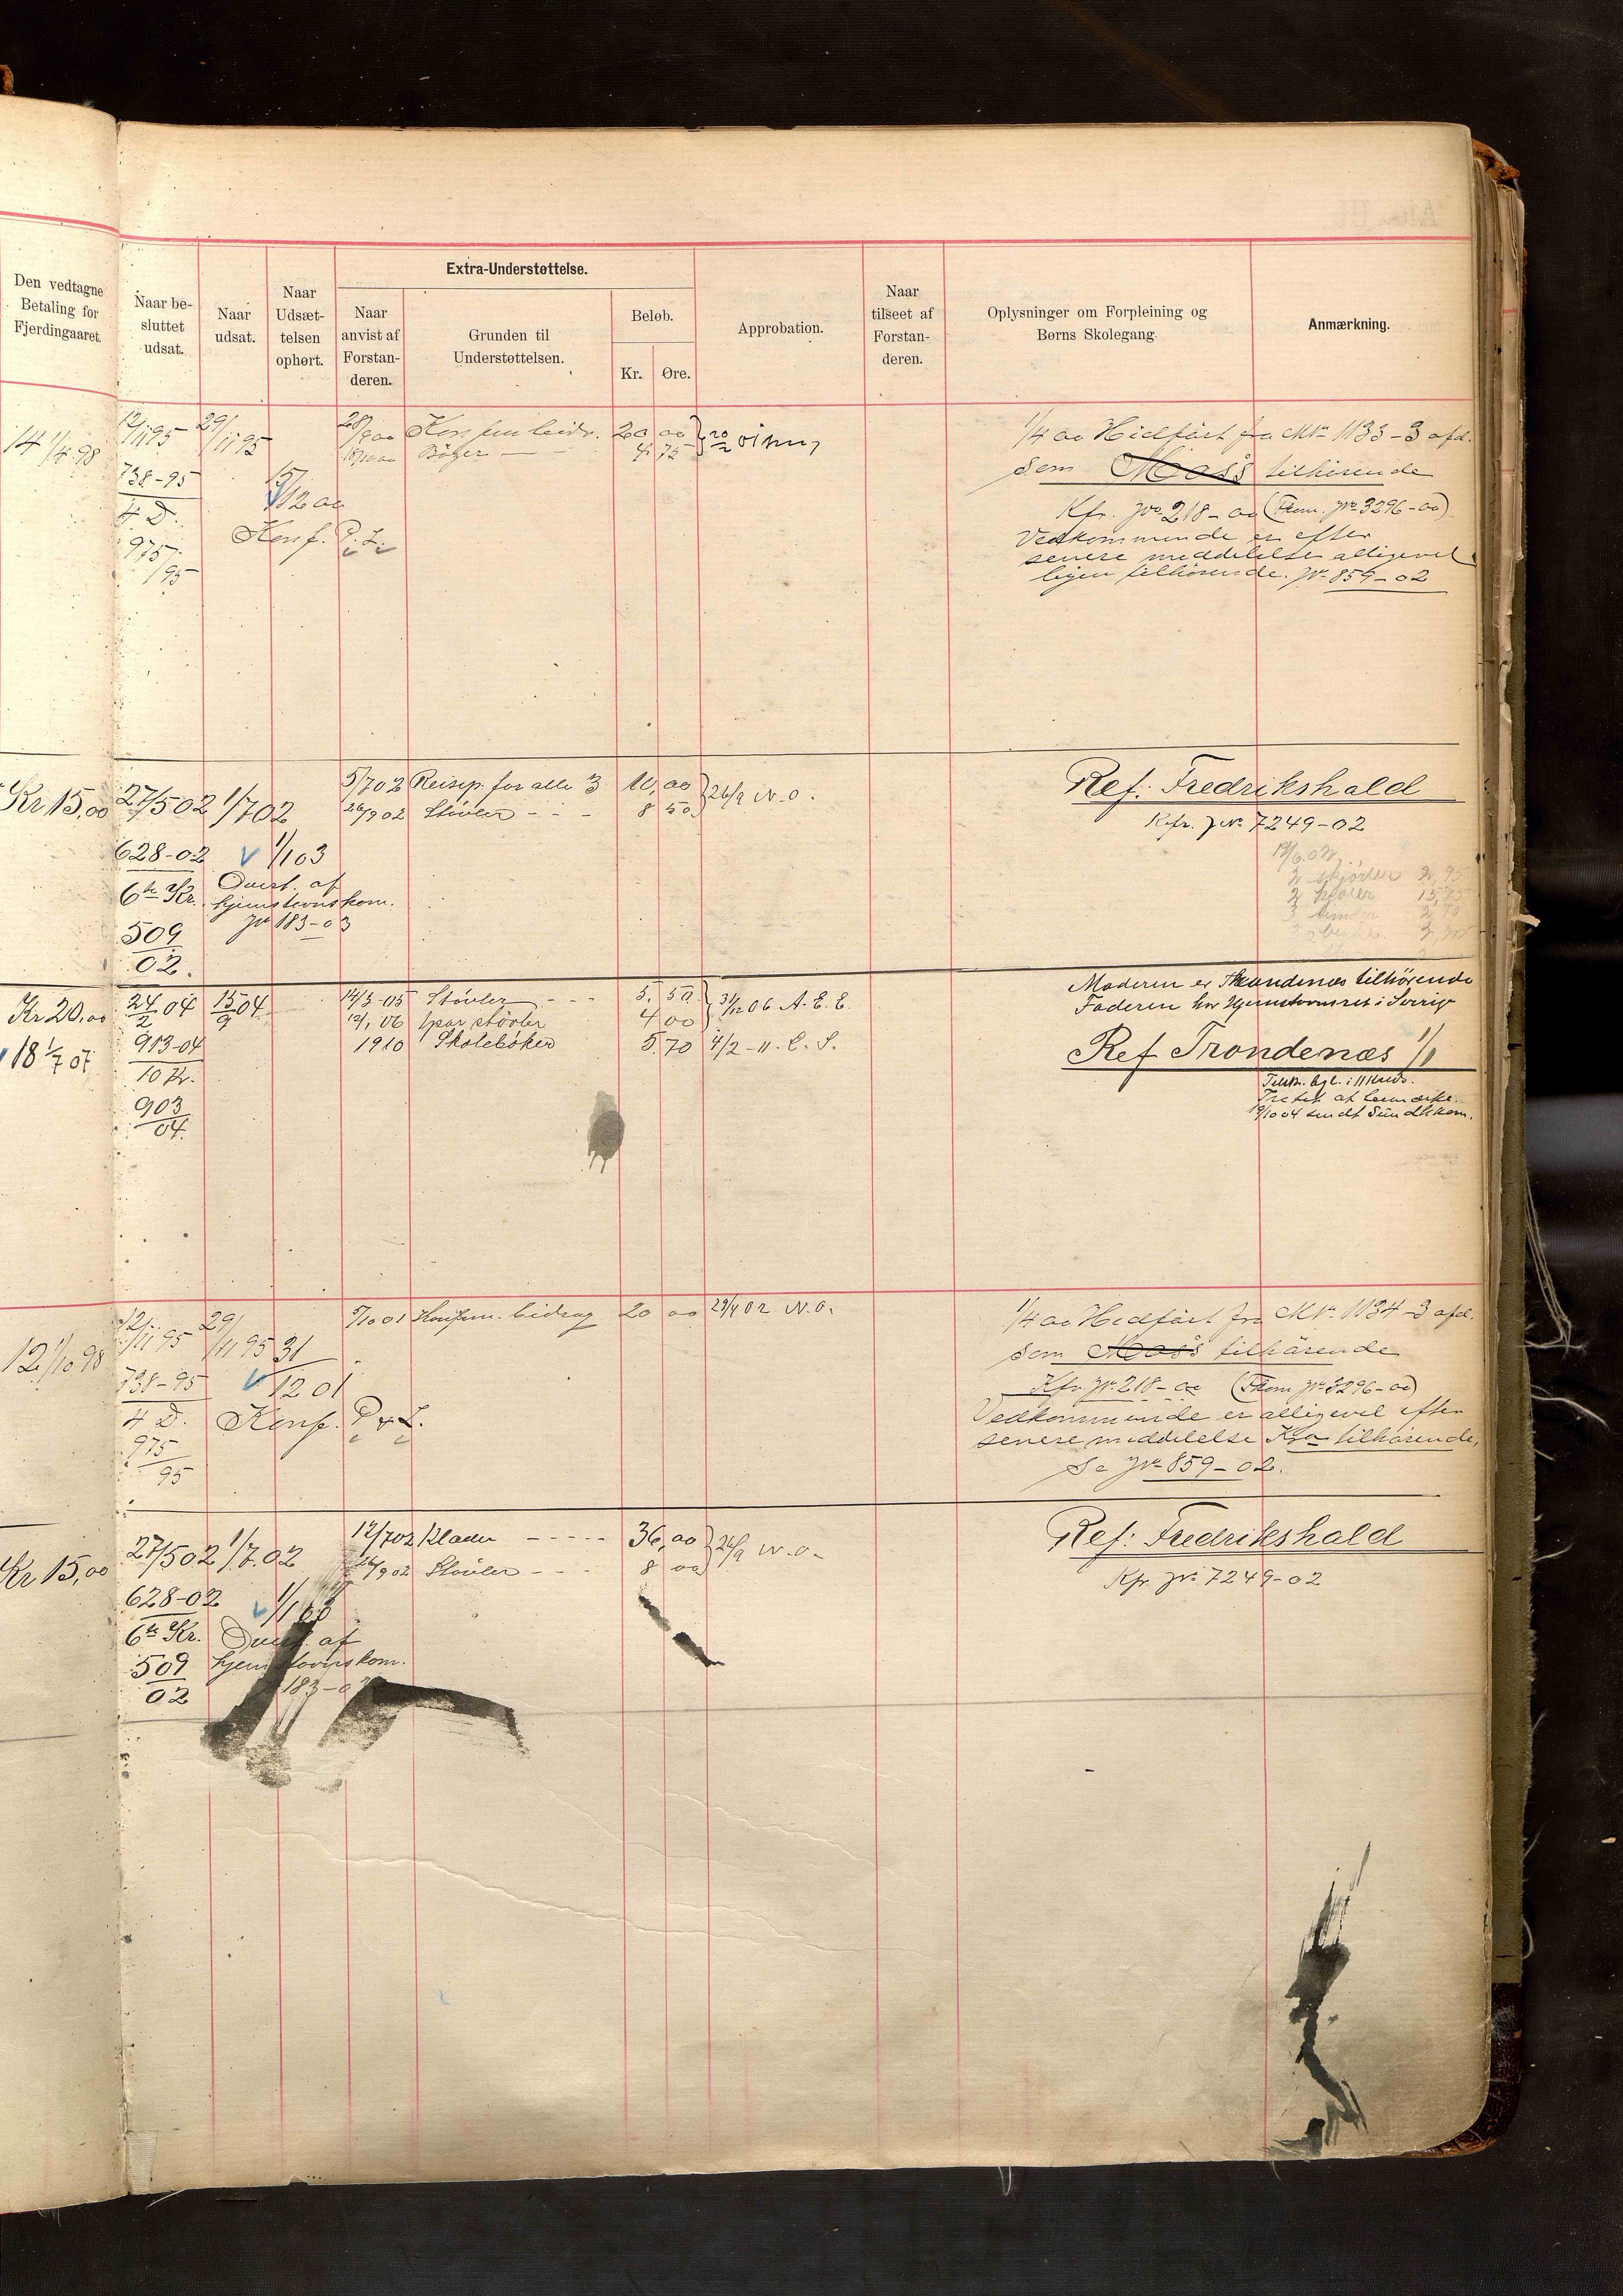 Den vedtagne
Betaling for
Fjerdingaaret.
Naar be-
sluttet
udsat.
Naar
udsat.
Naar
Udsæt-
telsen
ophørt.
Extra-Understøttelse.
Naar
anvist af
Forstan-
deren.
Grunden til
Understøttelsen.
Beløb.
Kr.
Øre.
Approbation.
Naar
tilseet af
Forstan-
deren.
Oplysninger om Forpleining og
Børns Skolegang.
Anmærkning.
14 1/4 98
12/11 95 29/11 95
20 00
Bøger 4 75
738-95
4 D.
975/95
15/12 00
Konf.
1/4 00 Hidført fra M№ 1133-3 afd.
som Moss tilhørende
Kfr. J№ 218-00 (Fkom. J№ 3296-00)
Vedkommende er efter
senere meddelelse alligevel
byen tilhørende. J№ 859-02
Kr 15,00 27/5 02 1/7 02
628-02 1/1 03
6te Kr. Overt. af
hjemstavnskom.
509 J№ 183-03
02.
5/7 02 Reisep. for alle 3 10,00
26/9 02 Støvler - - - 8 50 26/9 N.O.
Ref: Fredrikshald
Kfr. J№ 7249-02
Kr 20,00 24/2 04 15/9 04
18 1/7 07 913-04
10 Kr.
903
04.
14/3-05 Støvler - - - 5.50
12/1 06 1 par støvler 4 00 31/12 06 A.E.E.
1910 Skolebøker 5.70 4/2-11. C.S.
Moderen er Trondenæs tilhørende
Faderen har Hjemstavnsret i Sverig
Ref Trondenæs 1/1
19/10 04 sendt Sundhkom.
12 1/10 98 12/11 95 29/11 95 31/12 01
738-95
4 D. Konf.
975
95
5/10 01 Konfirm. bidrag 20 00 29/4 02 N.O.
1/4 00 Hidført fra M№ 1134-3 afd.
som Moss tilhørende
Kfr. J№ 218-00 (Fkom J№ 3296-00)
Vedkommende er alligevel efter
senere meddelelse Kra tilhørende,
Se J№ 859-02.
Kr 15,00 27/5 02 1/7.02
628-02 1/1 03
6te Kr. Overt. af
509 hjemstavnskom.
02 183-03
12/7 02 Klæder - - - - - 36,00
26/9 02 Støvler - - - 8 00 26/9 N.O.
Ref: Fredrikshald
Kfr. J№ 7249-02